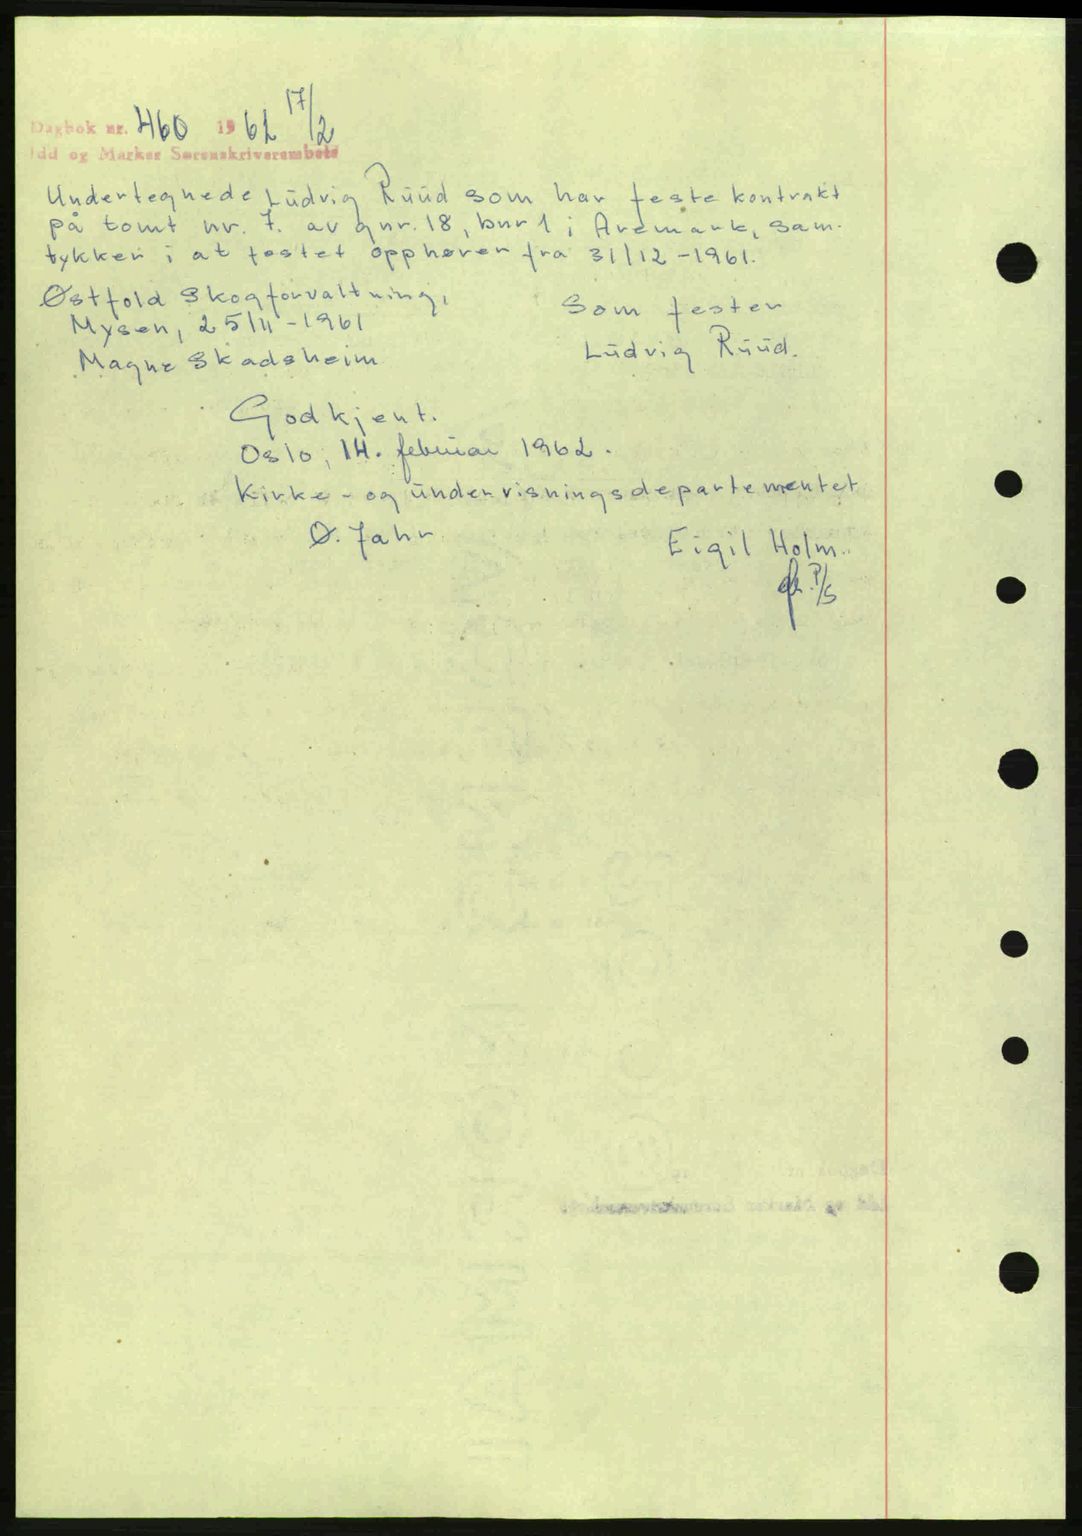 Dagbok nr. 460 1962 17/2
Idd og Marker Sorenskriverembete
Undertegnede Ludvig Ruud som har festekontrakt
på tomt nr. 7. av gnr. 18, bnr 1 i Aremark, sam-
tykker i at festet opphører fra 31/12-1961.
Østfold Skogforvaltning,
Mysen, 25/11-1961
Magne Skadsheim
Som fester
Ludvig Ruud.
Godkjent.
Oslo, 14. februar 1962.
Kirke- og undervisningsdepartementet
Ø. Jahr
Eigil Holm.